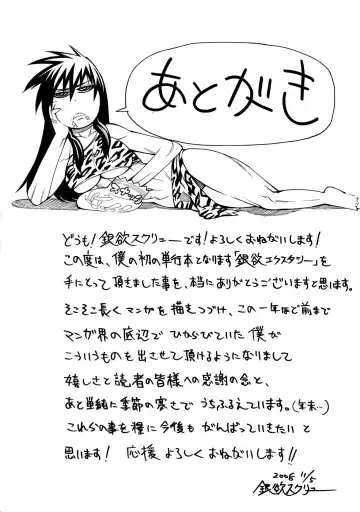 あとがき
どうも!銀欲スクリューです!よろしくおねがいします!
この度は、僕の初の単行本となります「銀欲エクスタシー」を
手にとって頂きました事を、本当にありがとうございますと思います。
そこそこ長くマンガを描きつづけ、この一年ほど前まで
マンガ界の底辺でひからびていた僕が
こういうものを出させて頂けるようになりまして
嬉しさと読者の皆様への感謝の念と、
あと単純に季節の寒さでうちふるえています。(年末…)
これからの事を糧に今後もがんばっていきたいと
思います! 応援よろしくおねがいします!!
2008 11/5
銀欲スクリュー